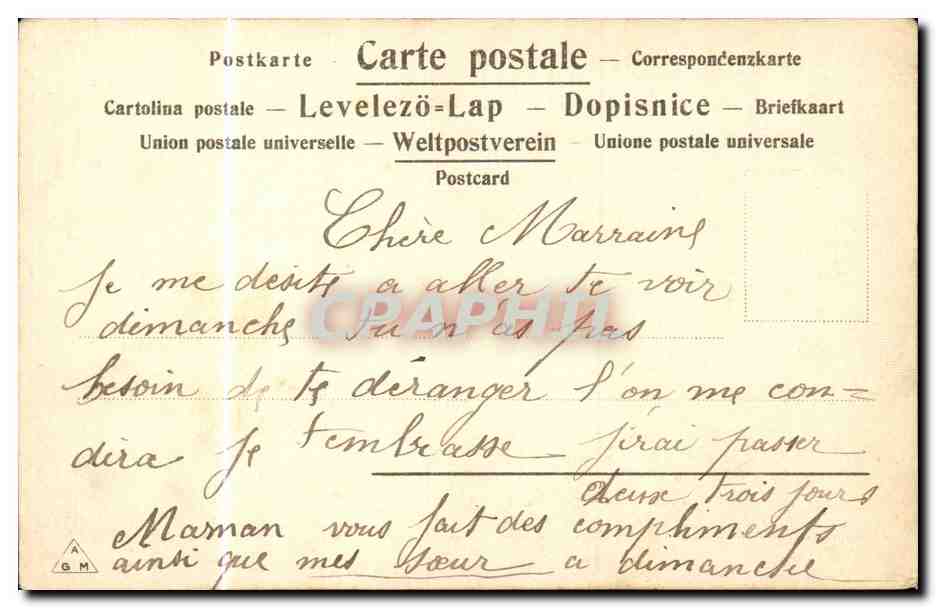 Postkarte - Carte postale — Correspondenzkarte
Cartolina postale — Levelezö=Lap — Dopisnice — Briefkaart
Union postale universelle — Weltpostverein - Unione postale universale
Postcard
Chère Marraine
Je me deside a aller te voir
dimanche, tu n as pas
besoin de te déranger l'on me con=
dira Je t'embrasse j'irai passer
deux trois jours
Maman vous fait des compliments
ainsi que mes sœur a dimanche
A
G M
CPAPHIL